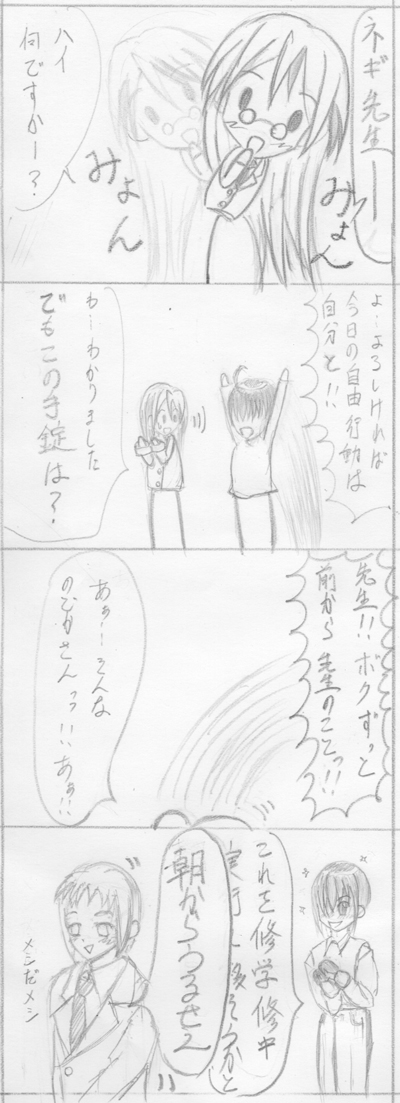 ネギ先生ー
みょん
みょん
ハイ
何ですかー?
よ…よろしければ
今日の自由行動は
自分と!!
わ…わかりました
でもこの手錠は?
先生!!ボクずっと
前から先生のことっ!!
あぁ…そんな
のどかさんっっ!!あぁ!!
これを修学修中
実行に移そうかと
朝からうるせえ
メシだメシ